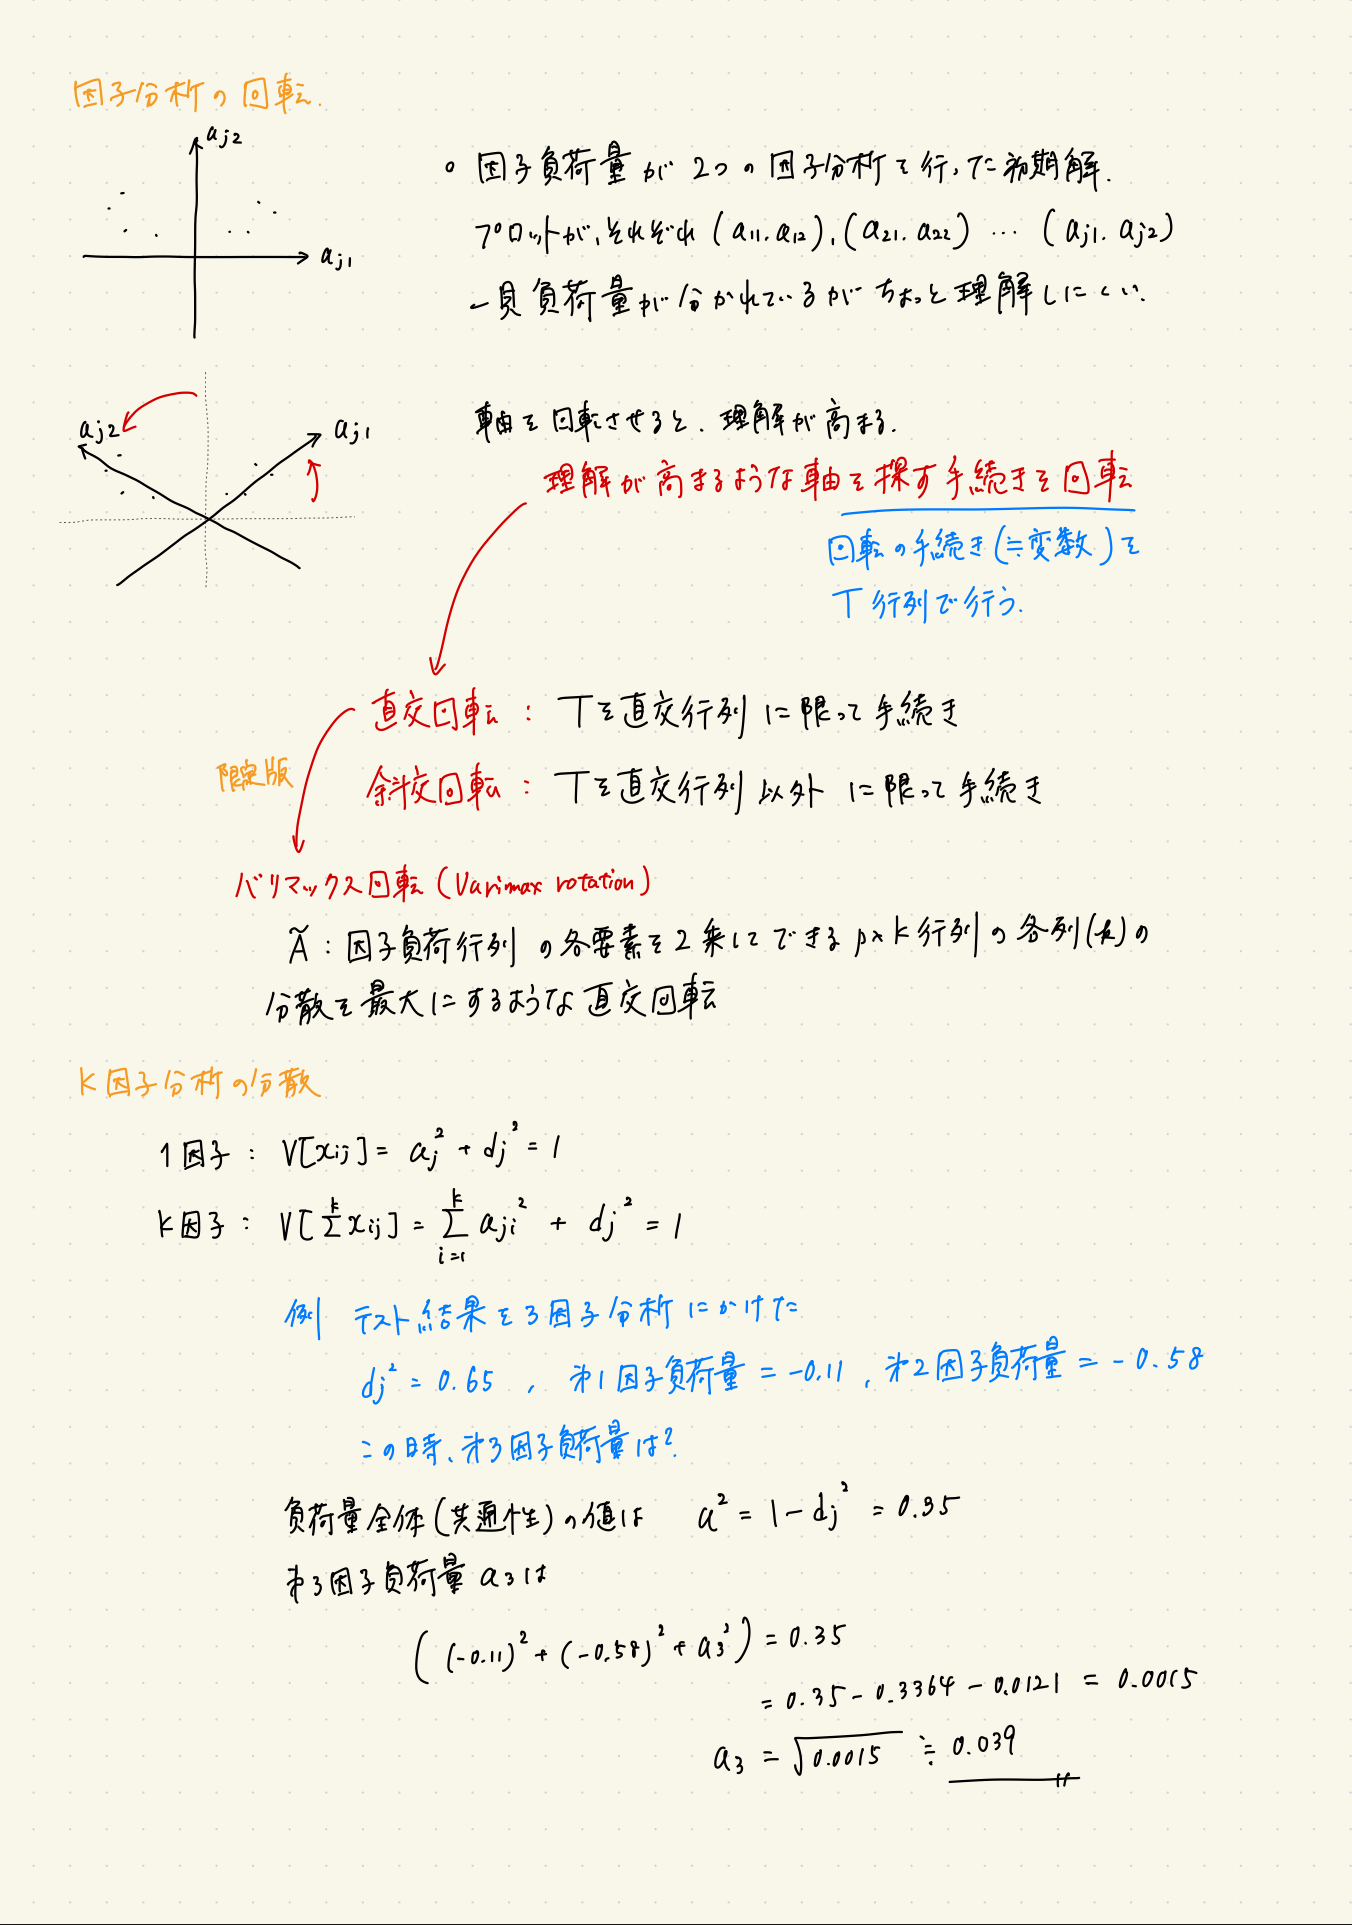 因子分析の回転.
aj2
aj1
○ 因子負荷量が2つの因子分析を行った初期解.
プロットが、それぞれ (a11. a12), (a21. a22) … (aj1. aj2)
一見負荷量が分かれているがちょっと理解しにくい.
aj2
aj1
軸を回転させると、理解が高まる.
理解が高まるような軸を探す手続きを回転
回転の手続き(≒変数)を
T行列で行う.
直交回転 : Tを直交行列に限って手続き
限定版
斜交回転 : Tを直交行列以外に限って手続き
バリマックス回転 (Varimax rotation)
Ã : 因子負荷行列の各要素を2乗してできるp×k行列の各列(k)の
分散を最大にするような直交回転
k因子分析の分散
1因子 : V[xij] = aj² + dj² = 1
k因子 : V[Σ^k xij] = Σ_{i=1}^{k} aji² + dj² = 1
例 テスト結果を3因子分析にかけた
dj² = 0.65 , 第1因子負荷量 = -0.11 , 第2因子負荷量 = -0.58
この時、第3因子負荷量は?
負荷量全体(共通性)の値は a² = 1 - dj² = 0.35
第3因子負荷量 a3 は
((-0.11)² + (-0.58)² + a3²) = 0.35
= 0.35 - 0.3364 - 0.0121 = 0.0015
a3 = √0.0015 ≒ 0.039